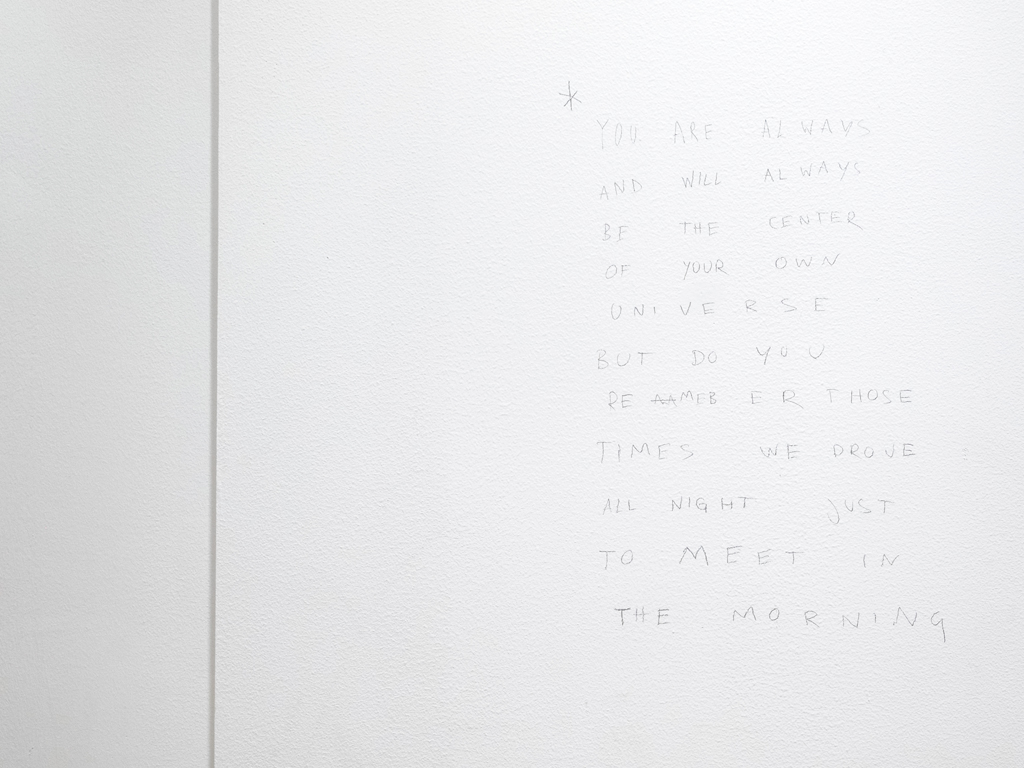 *
YOU ARE ALWAYS
AND WILL ALWAYS
BE THE CENTER
OF YOUR OWN
UNIVERSE
BUT DO YOU
REMEBER THOSE
TIMES WE DROVE
ALL NIGHT JUST
TO MEET IN
THE MORNING